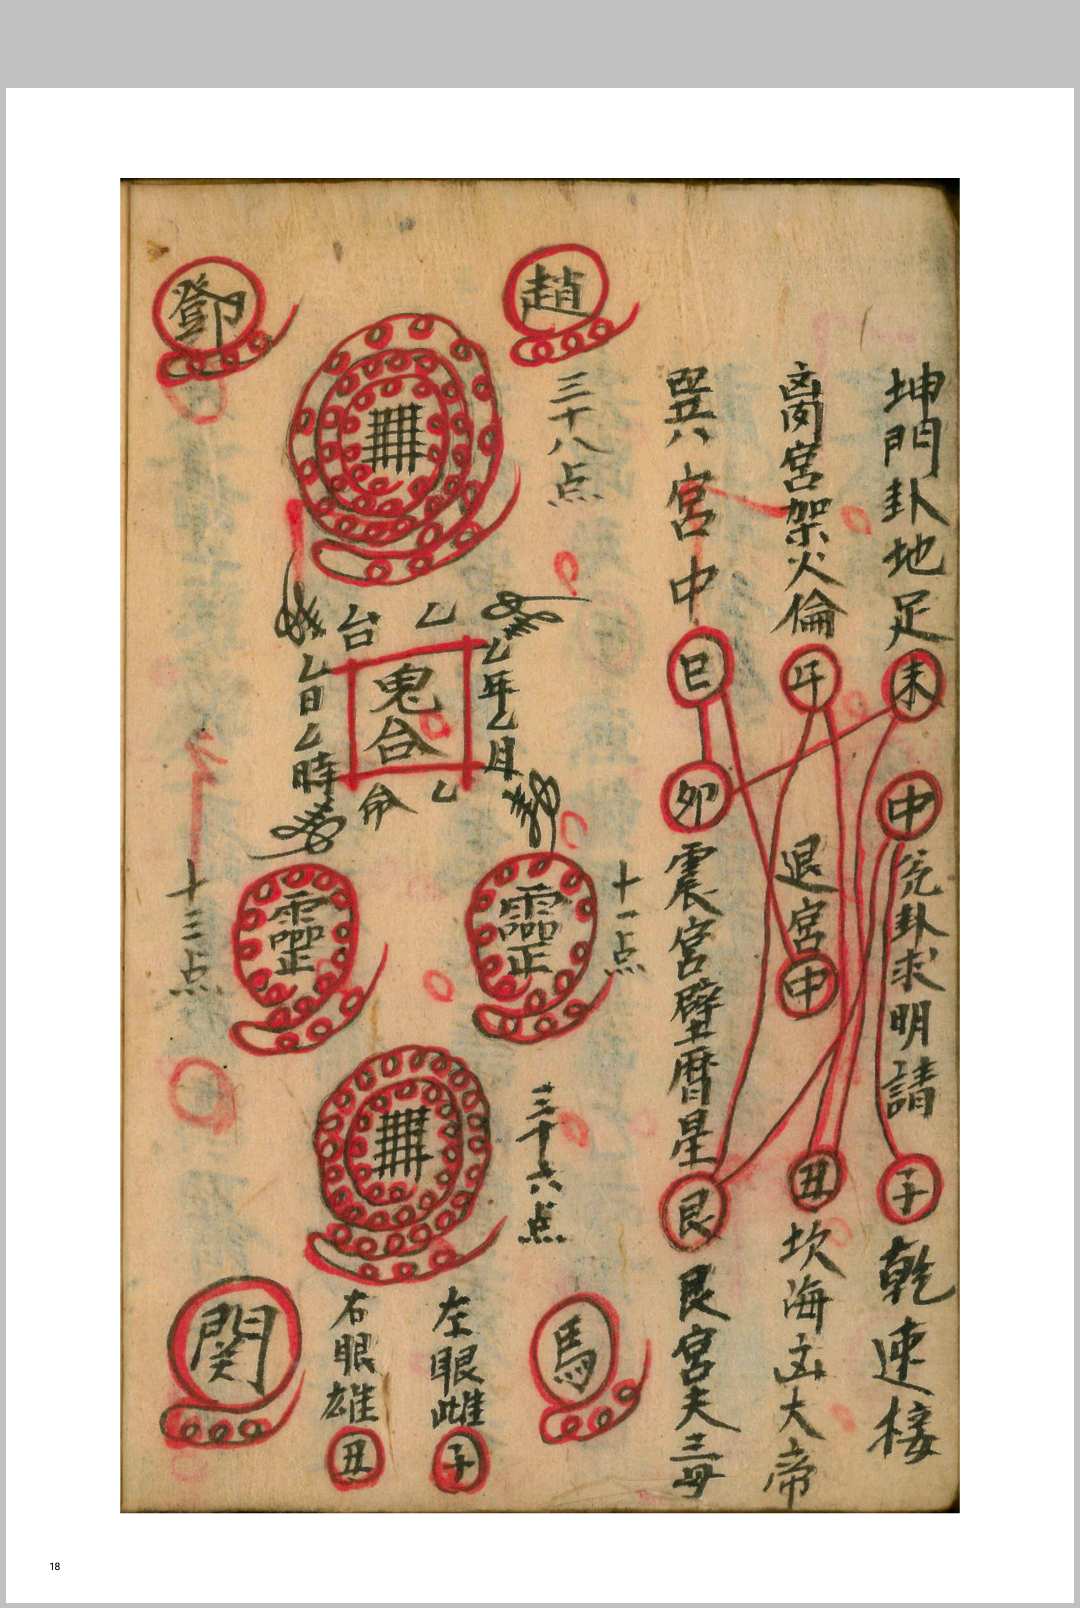 坤門卦地足
未
申
兌卦求明請
子
乾速接
离宮架火倫
午
退宮
申
丑
坎海立大帝
巽宮中
巳
卯
震宮壁曆星
艮
艮宮夫三毋
趙
三十八点
乙年乙月
十一点
靈
三十六点
馬
乙
鬼
台
乙
左眼雌
子
台
命
右眼雄
丑
乙日乙時
靈
十三点
鄧
関
18